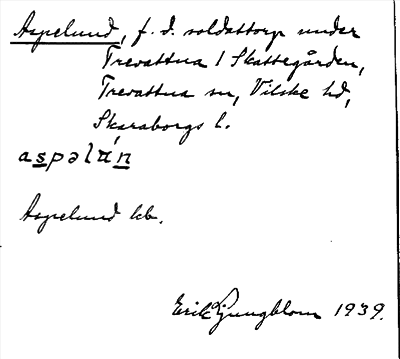 Aspelund, f. d. soldattorp under
Trevattna 1 Skattegården,
Trevattna sn, Vilske hd,
Skaraborgs l.
aspəlán
Aspelund kb.
Erik Ljungblom 1939.